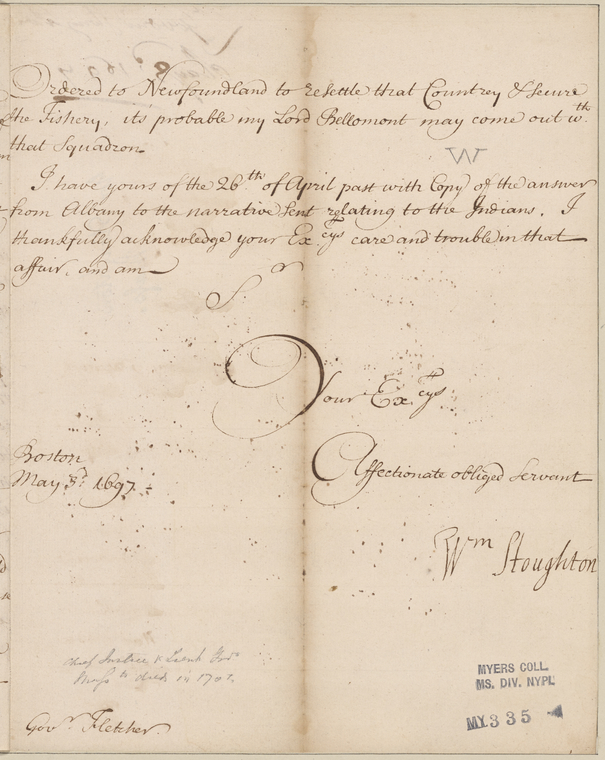 Ordered to Newfoundland to resettle that Countrey & secure
the Fishery, it's probable my Lord Bellomont may come out wth
that Squadron
I have yours of the 26th of April past with Copy of the answer
from Albany to the narrative sent relating to the Indians. I
thankfully acknowledge your Exceys care and trouble in that
affair, and am
Sr
Your Exceys
Affectionate obliged Servant
Boston
May 3d 1697.
Wm Stoughton
Chief Justice & Lieut Govr
Masstts died in 1702.
Govr Fletcher.
MYERS COLL.
MS. DIV. NYPL
MY 335